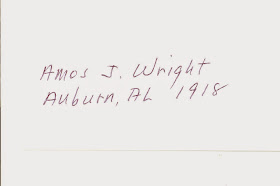 Amos J. Wright
Auburn, AL 1918